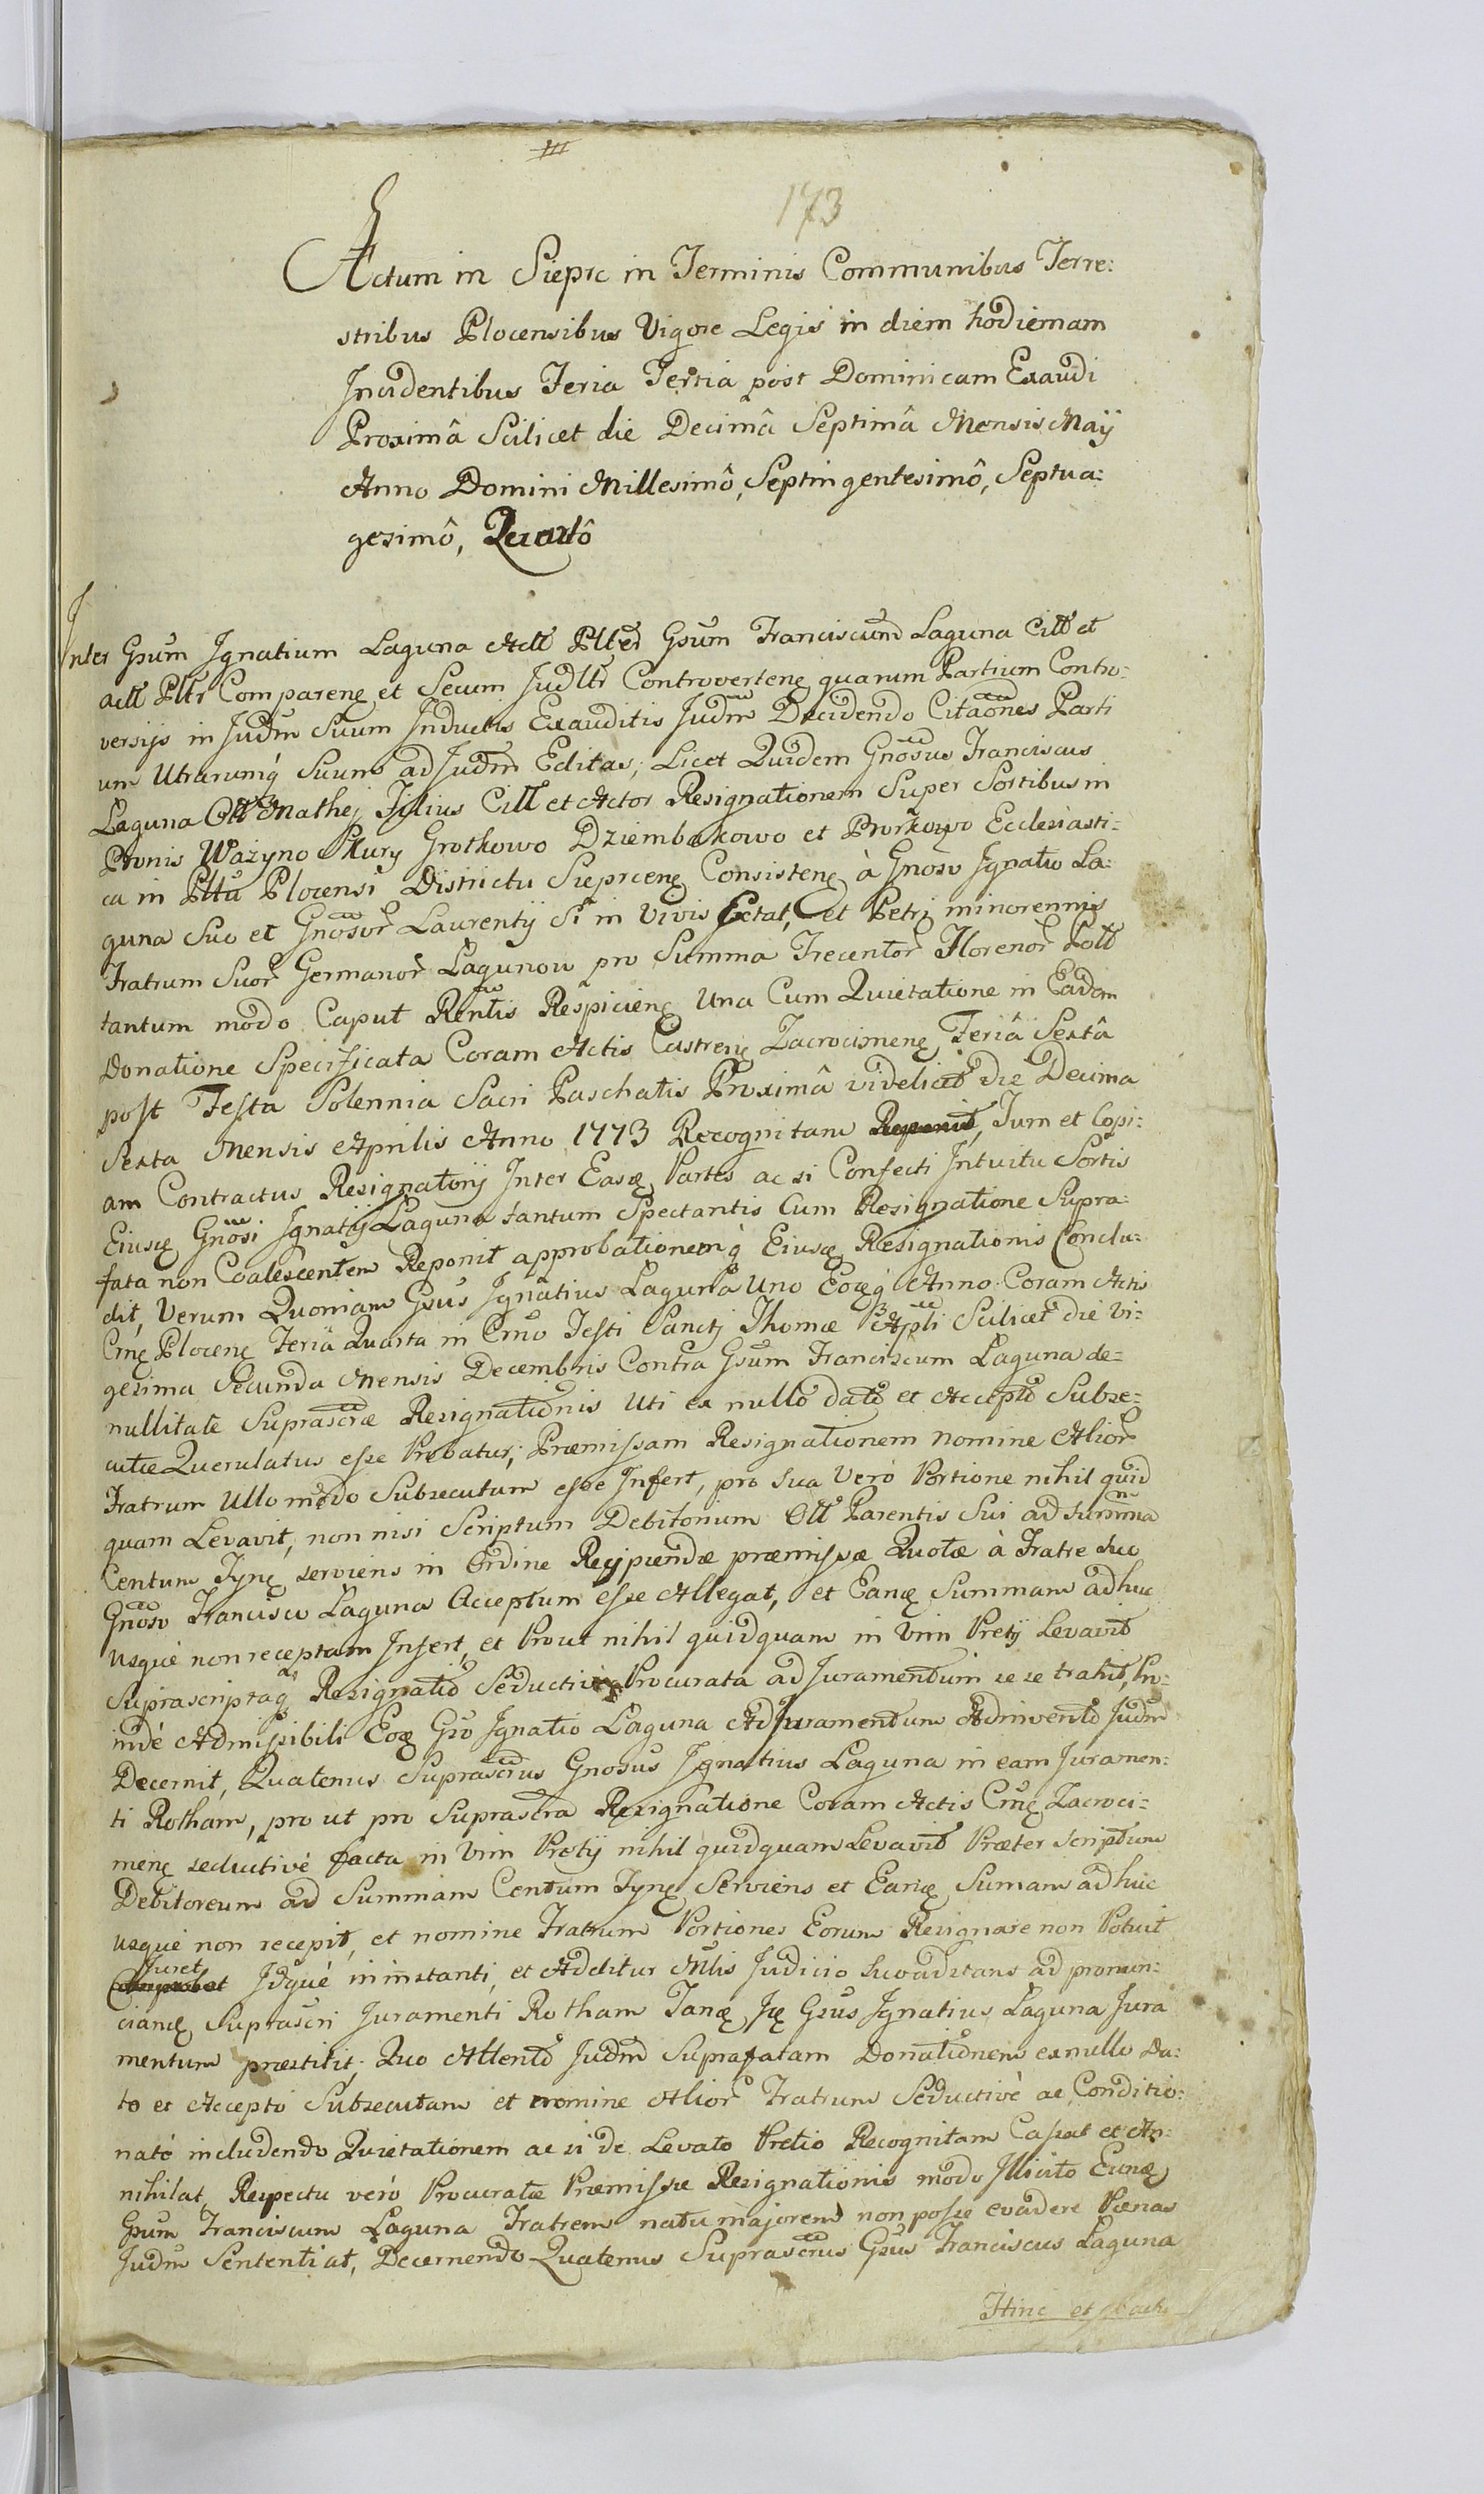 III
173
Actum in Sieprc in Terminis Communibus Terre:
stribus Plocensibus Vigore Legis in diem hodiernam
Incidentibus Feria Tertia post Dominicam Exaudi
Proximâ Scilicet die Decimâ Septimâ Mensis Maÿ
Anno Domini Millesimô, Septingentesimô, Septua:
gesimô, Quartô
Inter Gsum Ignatium Laguna Actt Pltem Gsum Franciscum Laguna Citt et
actt Pltr Comparenę et Secum Judltr Controvertenę quarum Partium Contro:
versijs in Judm Suum Inductis Exauditis Judm Decidendo Citaones Parti
um Utrarumq́ Suum ad Judm Editas, Licet Quidem Gnosus Franciscus
Laguna Olt Mathej Filius Citt et Actor Resignationem Super Sortibus in
Bonis Ważyno Kury Grotkowo Dziembakowo et Borkowo Ecclesiasti:
ca in Pltu Plocensi Districtu Sieprcenę Consistenę à Gnoso Ignatio La:
guna Suo et Gnosor Laurentij Si in Vivis Extat, et Petri minorennis
Fratrum Suor Germanor Lagunow pro Summa Trecentor Florenor Poltt
tantum modo Caput Rentis Respicienę Una Cum Quietatione in Eadem
Donatione Specificata Coram Actis Castrenę Zacrocimenę Feriâ Sextâ
post Festa Solennia Sacri Paschatis Proximâ videlicet die Decima
Sexta Mensis Aprilis Anno 1773 Recognitam Reponit, Tum et Copi:
am Contractus Resignatorij Inter Easę Partes ac si Confecti Intuitu Sortis
Eiusę Gnosi Ignatij Laguna tantum Spectantis Cum Resignatione Supra:
fata non Coalescentem Reponit approbationemq́ Eiusę Resignationis Conclu:
dit, Verum Quoniam Gsus Ignatius Laguna Uno Eoęq́ Anno Coram Actis
Crnę Plocenę Feria Quarta in Crno Festi Sancti Thomæ Apli Scilicet die Vi:
gesima Secunda Mensis Decembris Contra Gsum Franciscum Laguna de=
nullitate Suprascræ Resignationis Uti ex nullo dato et Accepto Subse=
cutæ Querulatus esse Probatur, Præmissam Resignationem nomine Alior
Fratrum Ullo modo Subsecutam esse Infert, pro Sua Verò Portione nihil quid
quam Levavit, non nisi Scriptum Debitorium Oltt Parentis Sui ad Summa
Centum Tynę serviens in Ordine Recipiendæ præmissæ Quotæ à Fratre Suo
Gnoso Francisco Laguna Acceptum esse Allegat, et Eanę Summam adhuc
usque non receptam Infert, et Prout nihil quidquam in Vim Pretij Levavit
Suprascriptaq Resignatio Seductive Procurata ad Juramentum se se trahit, Pro:
inde Admissibili Eoę Gso Ignatio Laguna Ad Juramentum Adinvento Judm
Decernit, Quatenus Suprascrus Gnosus Ignatius Laguna in eam Juramen:
ti Rotham, pro ut pro Suprascra Resignatione Coram Actis Crnę Zacroci=
menę seductivè facta in Vim Pretij nihil quidquam Levavit Præter scriptum
Debitoreum ad Summam Centum Tynę Serviens et Eanę Sumam adhuc
usque non recepit, et nomine Fratrum Portiones Eorum Resignare non Potuit
Juret
Comprobet Idque in instanti, et Additur Mlis Judicio Suo aditans ad pronun:
cianę Suprascri Juramenti Rotham Tanę Ię Gsus Ignatius Laguna Jura
mentum præstitit, Quo Attento Judm Suprafatam Donationem ex nullo Da:
to et Accepto Subsecutam et nomine Alior Fratrum Seductivè ac Conditio:
natè includendo Quietationem ac si de Levato Pretio Recognitam Cassat et An:
nihilat, Respectu verò Procuratæ Præmissæ Resignationis modo Illicito Eunę
Gsum Franciscum Laguna Fratrem natu majorem non posse evadere Pænas
Judm Sententiat, Decernendo Quatenus Suprascrus Gsus Franciscus Laguna
Hinc et